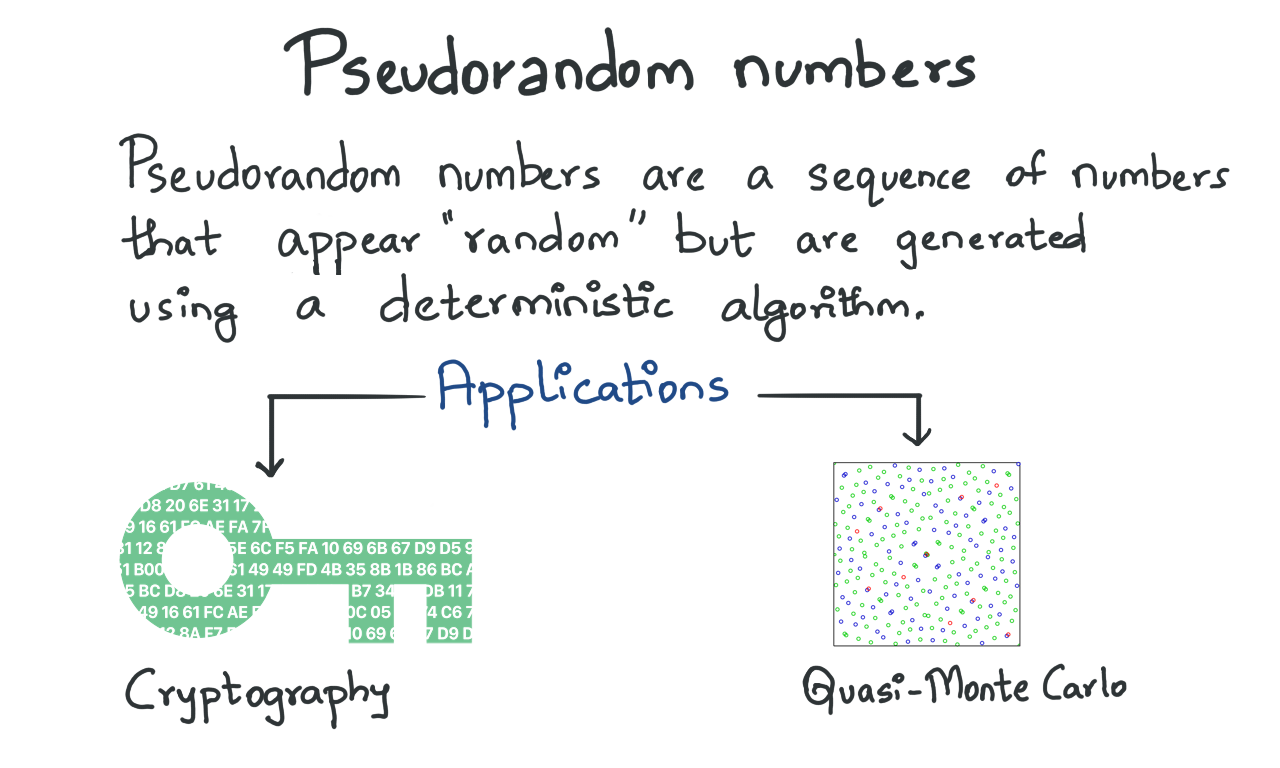 Pseudorandom numbers
Pseudorandom numbers are a sequence of numbers
that appear "random" but are generated
using a deterministic algorithm.
Applications
D8 20 6E 31 17
16 61 AE FA 7F
12 6C F5 FA 10 69 6B 67 D9 D5
B00 61 49 49 FD 4B 35 8B 1B 86 BC
BC 6E 31 17 B7 34 DB 11
49 16 61 FC AE 0C 05 C6
8A E7 69 D9
Cryptography
Quasi-Monte Carlo